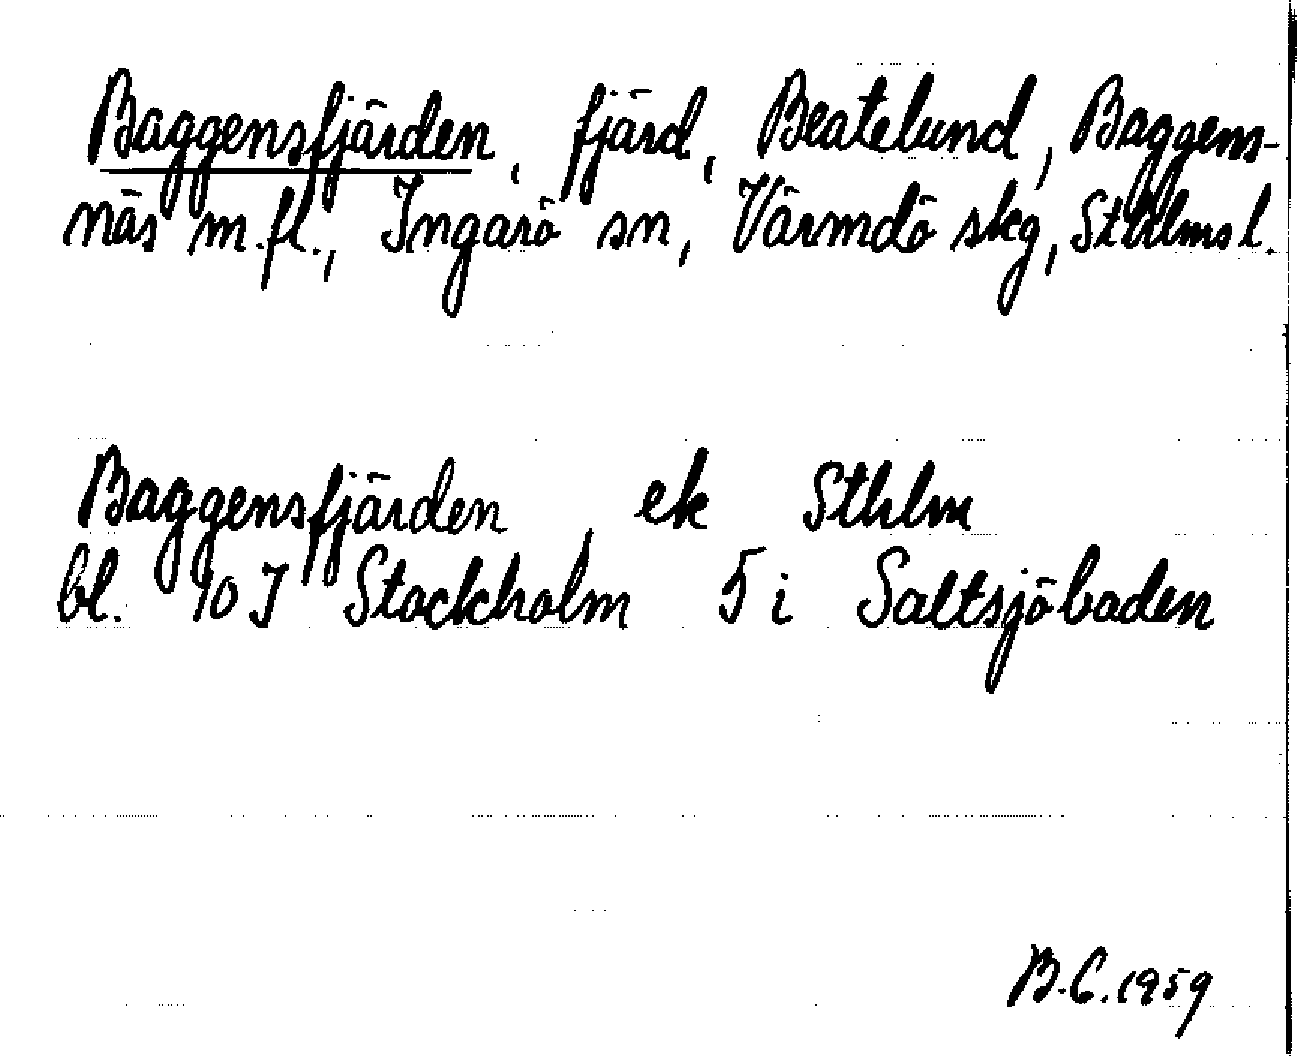 Baggensfjärden, fjärd, Beatelund, Baggens-
näs m.fl., Ingarö sn, Värmdö skg, Sthlms l.
Baggensfjärden ek Sthlm
bl. 10 I Stockholm 5 i Saltsjöbaden
B.C. 1959